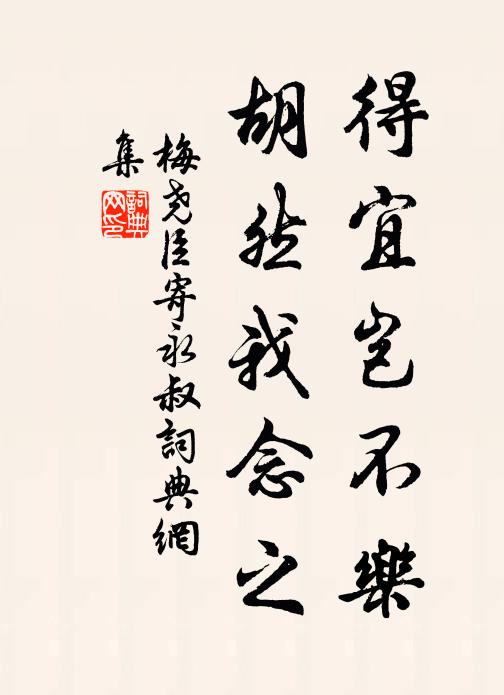 得宜岂不樂
胡然我念之
梅尧臣寄永叔詞典網
集
詞典
网印